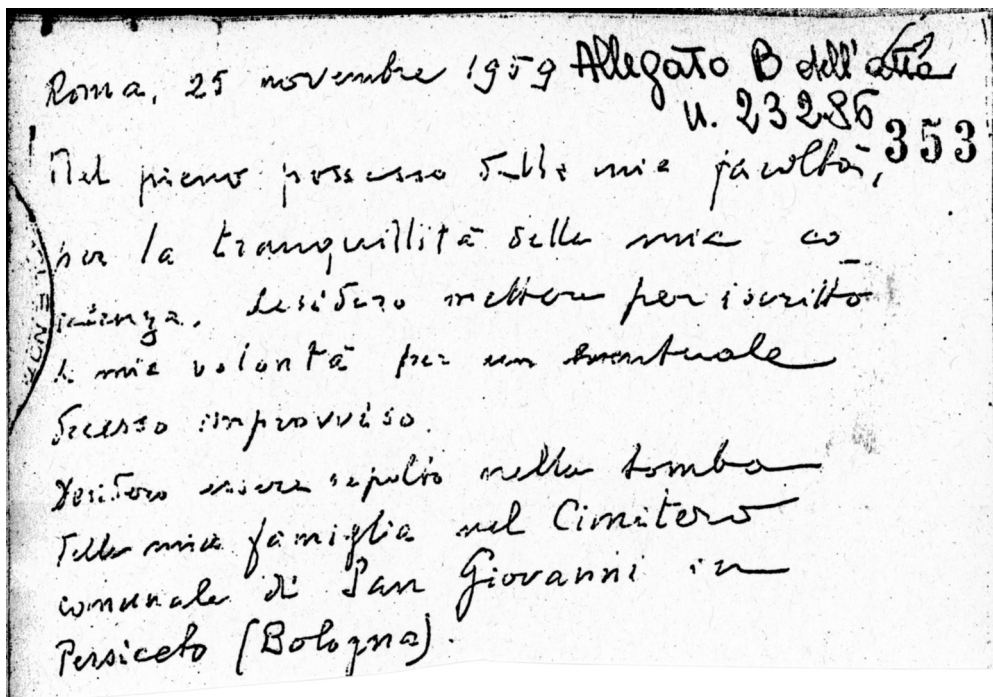 Roma, 25 novembre 1959 Allegato B dell'atto
n. 23286
353
Nel pieno possesso delle mie facoltà,
per la tranquillità della mia co
scienza, desidero mettere per iscritto
le mie volontà per un eventuale
decesso improvviso.
Desidero essere sepolto nella tomba
della mia famiglia nel Cimitero
comunale di San Giovanni in
Persiceto (Bologna).